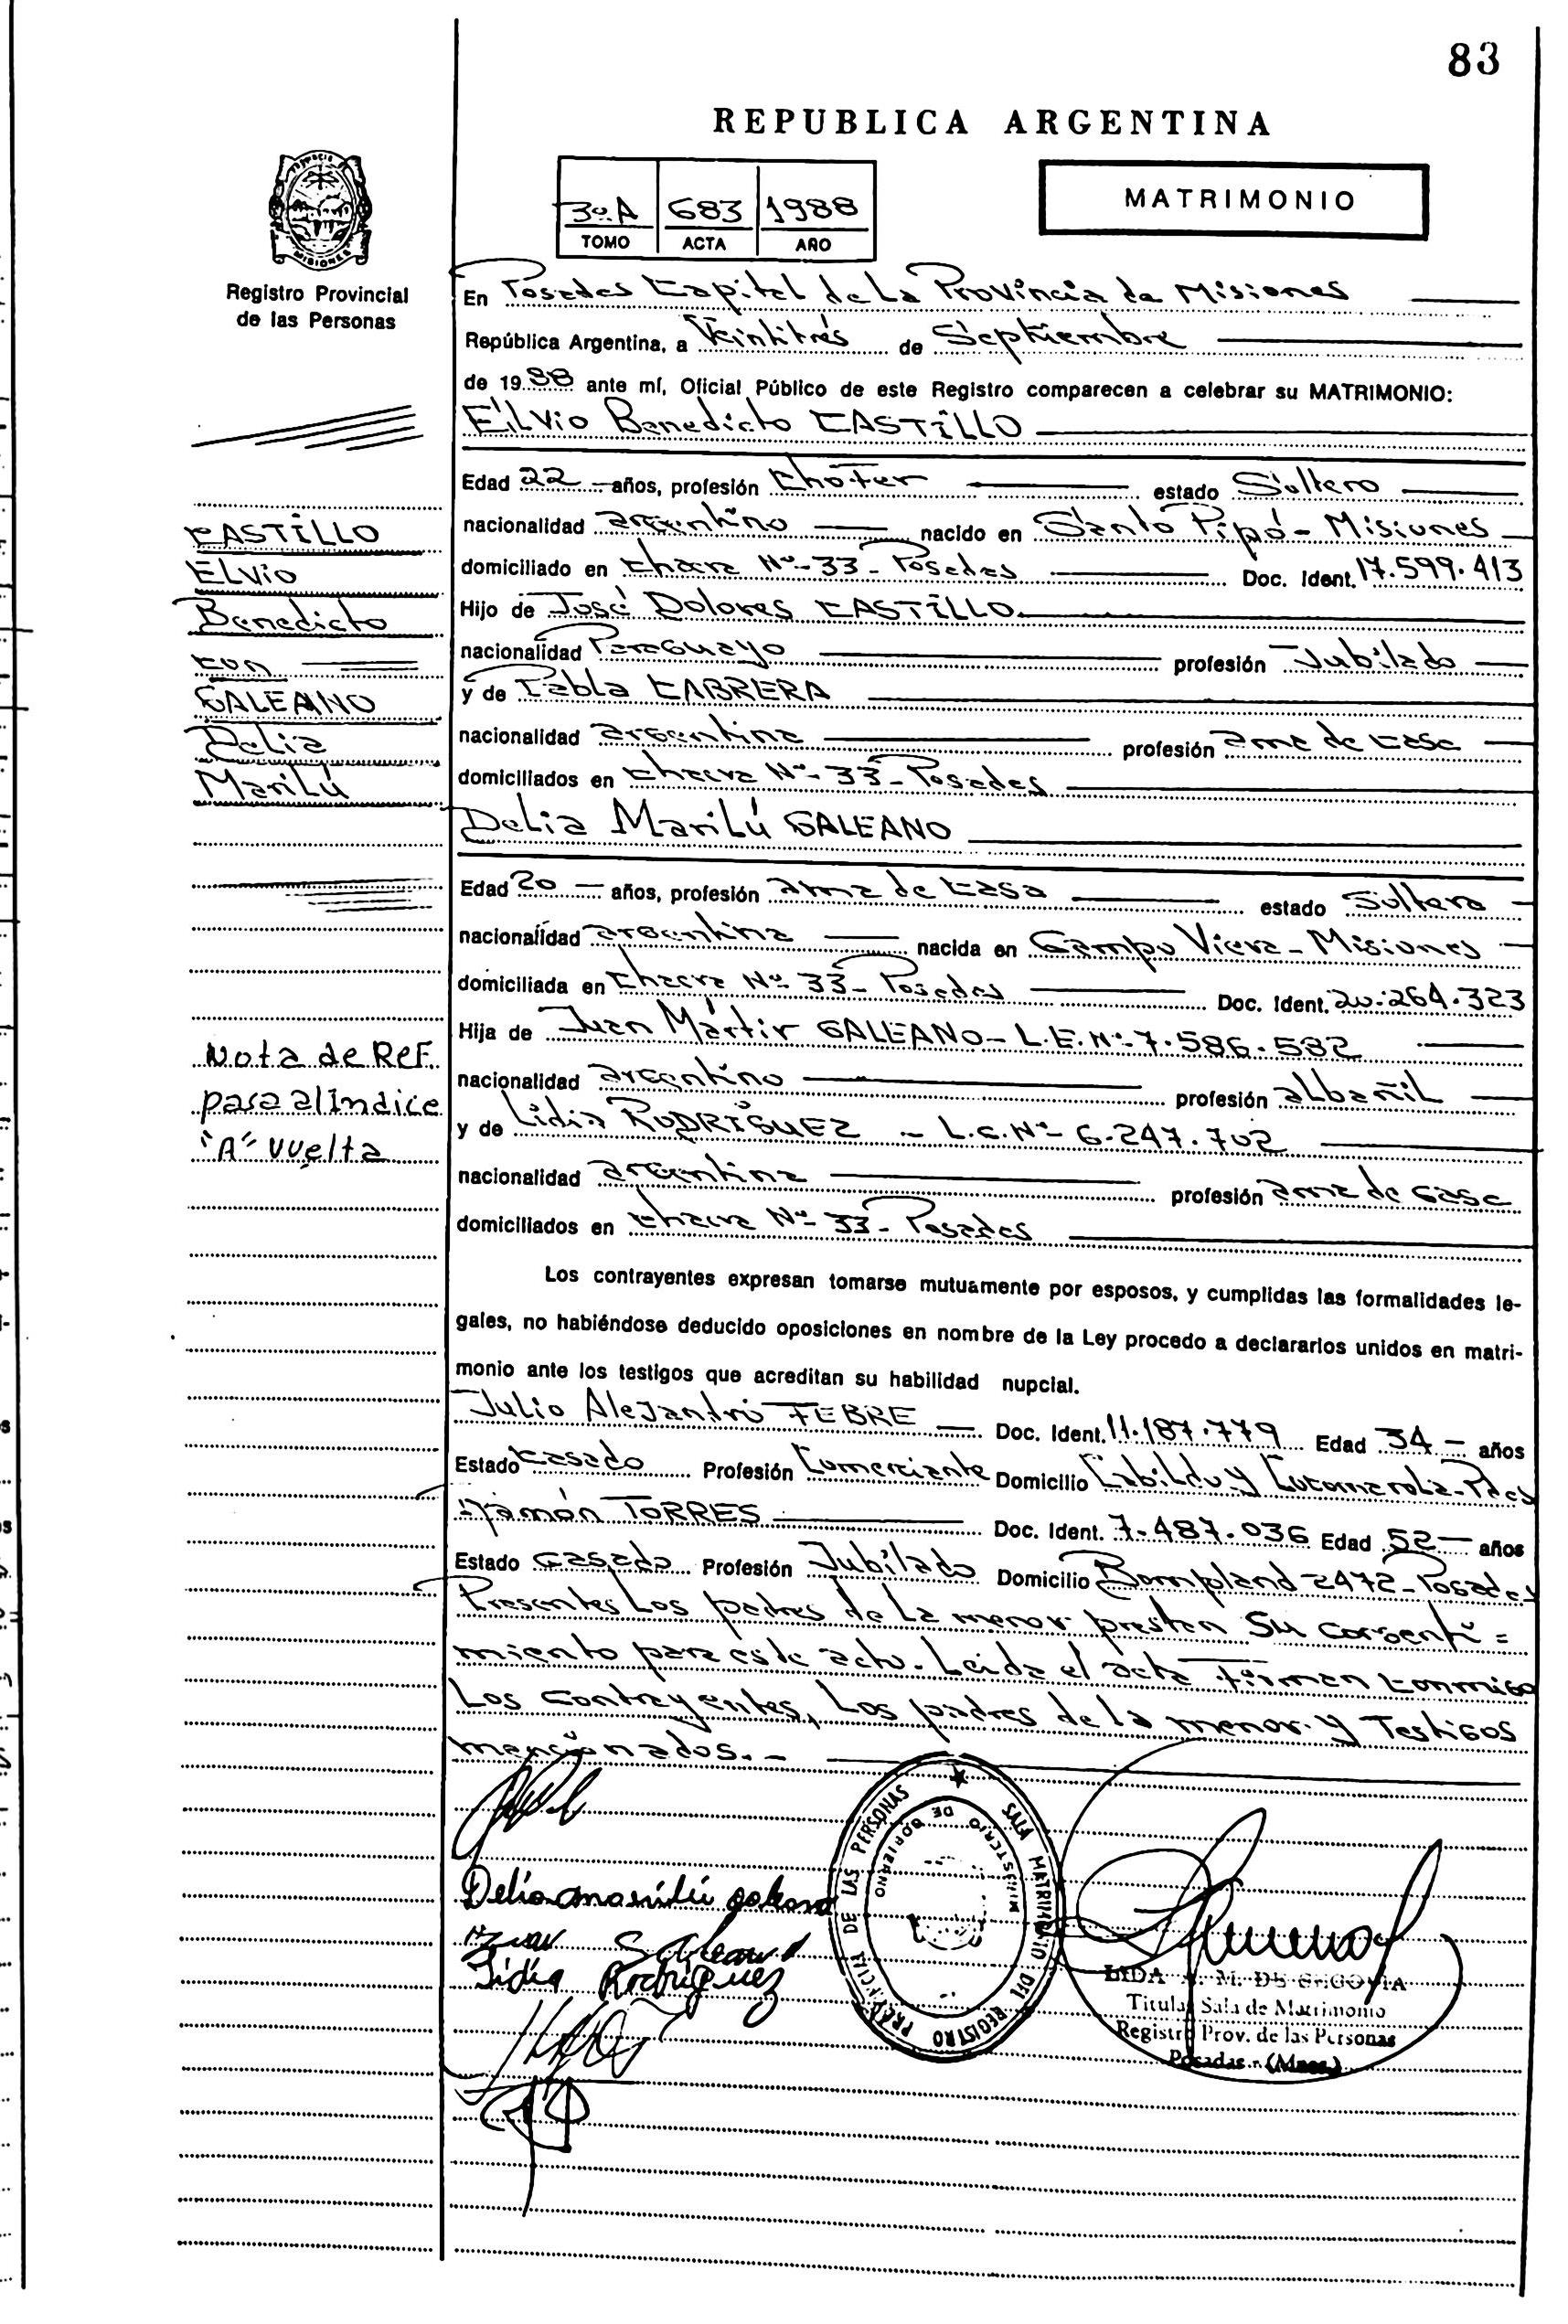 83
REPUBLICA ARGENTINA
MATRIMONIO
3º A 683 1988
TOMO ACTA AÑO
MISIONES
Registro Provincial
de las Personas
En Posadas Capital de La Provincia de Misiones
República Argentina, a Veintitrés de Septiembre
de 1988 ante mí, Oficial Público de este Registro comparecen a celebrar su MATRIMONIO:
Elvio Benedicto CASTILLO
Edad 22 años, profesión Chofer estado Soltero
nacionalidad argentino nacido en Santo Pipó - Misiones
domiciliado en Chacra Nº 33 - Posadas Doc. Ident. 17.599.413
Hijo de José Dolores CASTILLO
nacionalidad Paraguayo profesión Jubilado
y de Pabla CABRERA
nacionalidad argentina profesión ama de casa
domiciliados en Chacra Nº 33 - Posadas
Delia Marilú GALEANO
Edad 20 años, profesión ama de casa estado Soltera
nacionalidad argentina nacida en Campo Viera - Misiones
domiciliada en Chacra Nº 33 - Posadas Doc. Ident. 20.264.323
Hija de Juan Mártir GALEANO - L.E. Nº 7.586.582
nacionalidad argentino profesión albañil
y de Lidia RODRIGUEZ - L.C. Nº 6.247.702
nacionalidad argentina profesión ama de casa
domiciliados en Chacra Nº 33 - Posadas
Los contrayentes expresan tomarse mutuamente por esposos, y cumplidas las formalidades le-
gales, no habiéndose deducido oposiciones en nombre de la Ley procedo a declararlos unidos en matri-
monio ante los testigos que acreditan su habilidad nupcial.
Julio Alejandro FEBRE Doc. Ident. 11.187.779 Edad 34 años
Estado Casado Profesión Comerciante Domicilio Cabildo y Cocomarola - Pdas
Ramón TORRES Doc. Ident. 7.487.036 Edad 52 años
Estado Casado Profesión Jubilado Domicilio Bompland 2472 - Posadas
Presentes Los padres de La menor prestan Su consenti =
miento para este acto. Leída el acta Firman conmigo
Los Contrayentes, Los padres de la menor y Testigos
mencionados. -
CASTILLO
ELvio
Benedicto
con
GALEANO
Delia
MariLú
Nota de Ref.
para al Indice
"A" vuelta
Delia marilú galeano
Juan Galeano
Lidia Rodriguez
SALA MATRIMONIO DEL REGISTRO PROVINCIAL DE LAS PERSONAS
MINISTERIO DE GOBIERNO
LIDA M. DE SEGOVIA
Titular Sala de Matrimonio
Registro Prov. de las Personas
Posadas - (Mnes.)